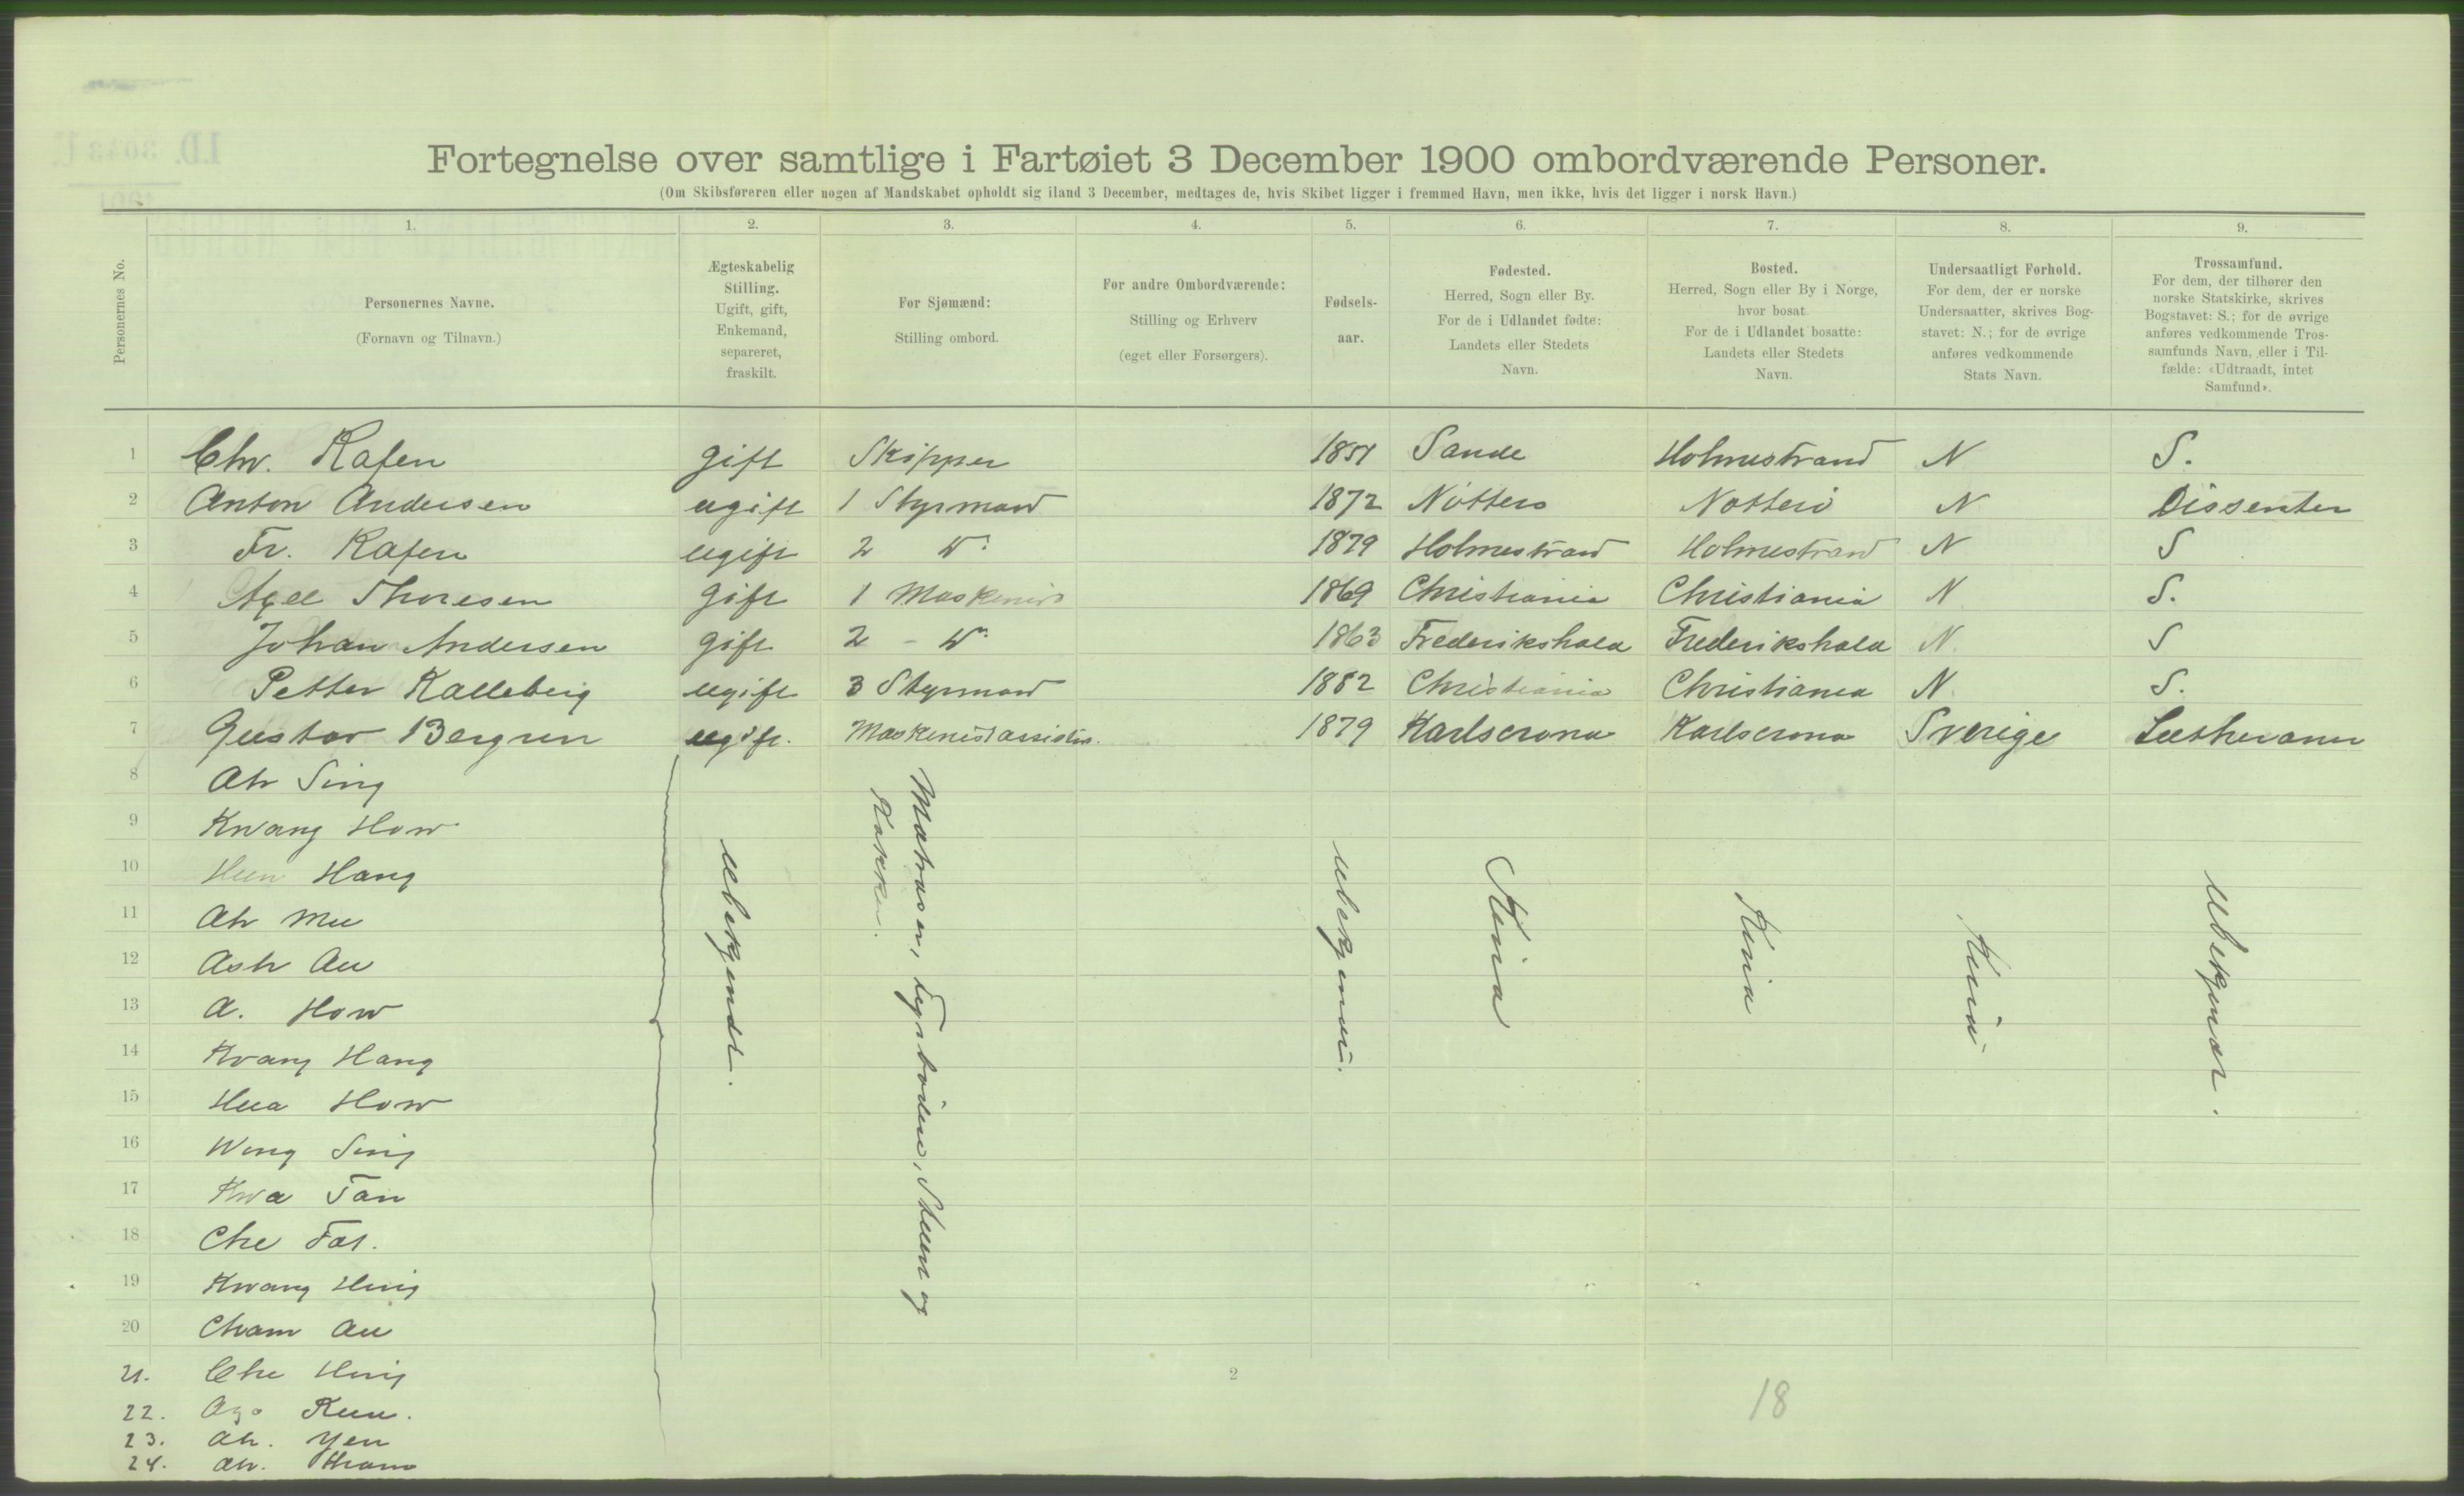 Fortegnelse over samtlige i Fartøiet 3 December 1900 ombordværende Personer.
(Om Skibsføreren eller nogen af Mandskabet opholdt sig iland 3 December, medtages de, hvis Skibet ligger i fremmed Havn, men ikke, hvis det ligger i norsk Havn.)
Personernes No.
1. 2. 3. 4. 5. 6. 7. 8. 9.
Personernes Navne.
(Fornavn og Tilnavn.)
Ægteskabelig
Stilling.
Ugift, gift,
Enkemand,
separeret,
fraskilt.
For Sjømænd:
Stilling ombord.
For andre Ombordværende:
Stilling og Erhverv
(eget eller Forsørgers).
Fødsels-
aar.
Fødested.
Herred, Sogn eller By.
For de i Udlandet fødte:
Landets eller Stedets
Navn.
Bosted.
Herred, Sogn eller By i Norge,
hvor bosat.
For de i Udlandet bosatte:
Landets eller Stedets
Navn.
Undersaatligt Forhold.
For dem, der er norske
Undersaatter, skrives Bog-
stavet: N.; for de øvrige
anføres vedkommende
Stats Navn.
Trossamfund.
For dem, der tilhører den
norske Statskirke, skrives
Bogstavet: S.; for de øvrige
anføres vedkommende Tros-
samfunds Navn, eller i Til-
fælde: «Udtraadt, intet
Samfund».
1 Chr. Rafen gift Skipper 1851 Sande Holmestrand N S.
2 Anton Andersen ugift 1 Styrmand 1872 Nötterö Nötterö N Dissenter
3 Fr. Rafen ugift 2 Do 1879 Holmestrand Holmestrand N S
4 Axel Thoresen gift 1 Maskinist 1869 Christiania Christiania N S.
5 Johan Andersen gift 2 - Do 1863 Frederikshald Frederikshald N. S
6 Petter Kalleberg ugift 3 Styrmand 1882 Christiania Christiania N. S.
7 Gustav Bergren ugift. Maskinistassistn. 1879 Karlscrona Karlscrona Sverige Lutheraner
8 Ah Sing
9 Kwang How
10 Hun Hang
11 Ah Mu
12 Ash Au
13 A. How
14 Kvang Hang
15 Hua How
16 Wong Sing
17 Kwa Tan
18 Che Fat.
19 Kwang Hing
20 Cham Au
21. Che Hing
22. Ago Kun.
23. Ah. Yen
24. Ah.
Ubekjendt.
Matroser, Fyrbödere, Stuert og
Kokker.
Ubekjendt.
Kina
Kina
Kina
Ubekjendt.
2
18